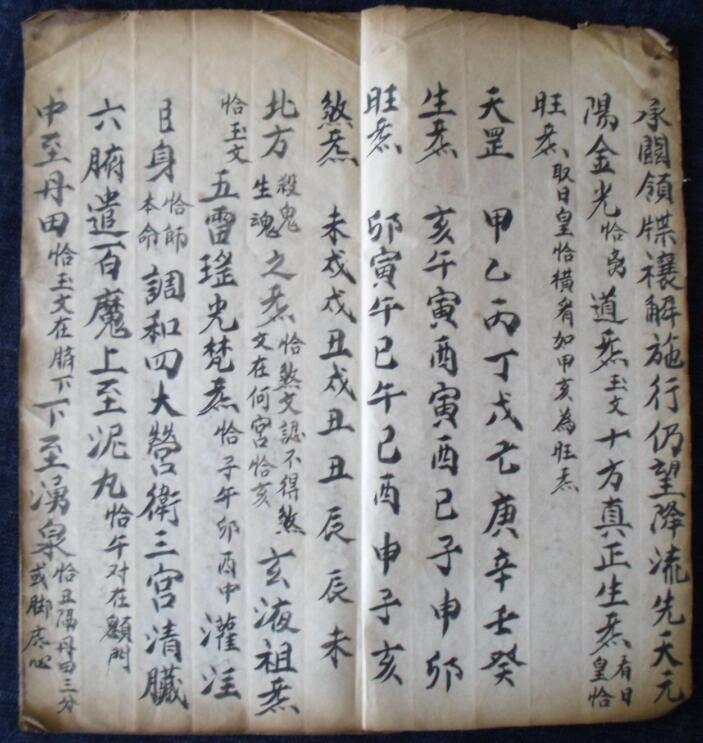 承關領牒禳解施行仍望降流先天元
陽金光恰离道炁玉文十方真正生炁看日皇恰
旺炁取日皇恰橫看如甲亥為旺炁
天罡 甲乙丙丁戊己庚辛壬癸
生炁 亥午寅酉寅酉巳子申卯
旺炁 卯寅午巳午巳酉申子亥
煞炁 未戍戍丑戍丑丑辰辰未
北方殺鬼生魂之炁恰煞文認不得煞文在何宮恰亥玄液祖炁
恰玉文五雷瑤光梵炁恰子午卯酉中灌注
身恰師本命調和四大營衛三宮清臟
六腑遣百魔上至泥丸恰午对在顖門
中至丹田恰玉文在臍下下至湧泉恰丑隔丹田三分或脚底心